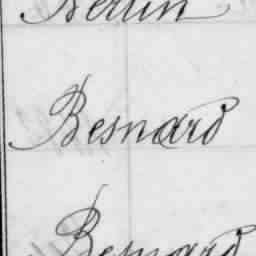 Bertin
Besnard
Besnard